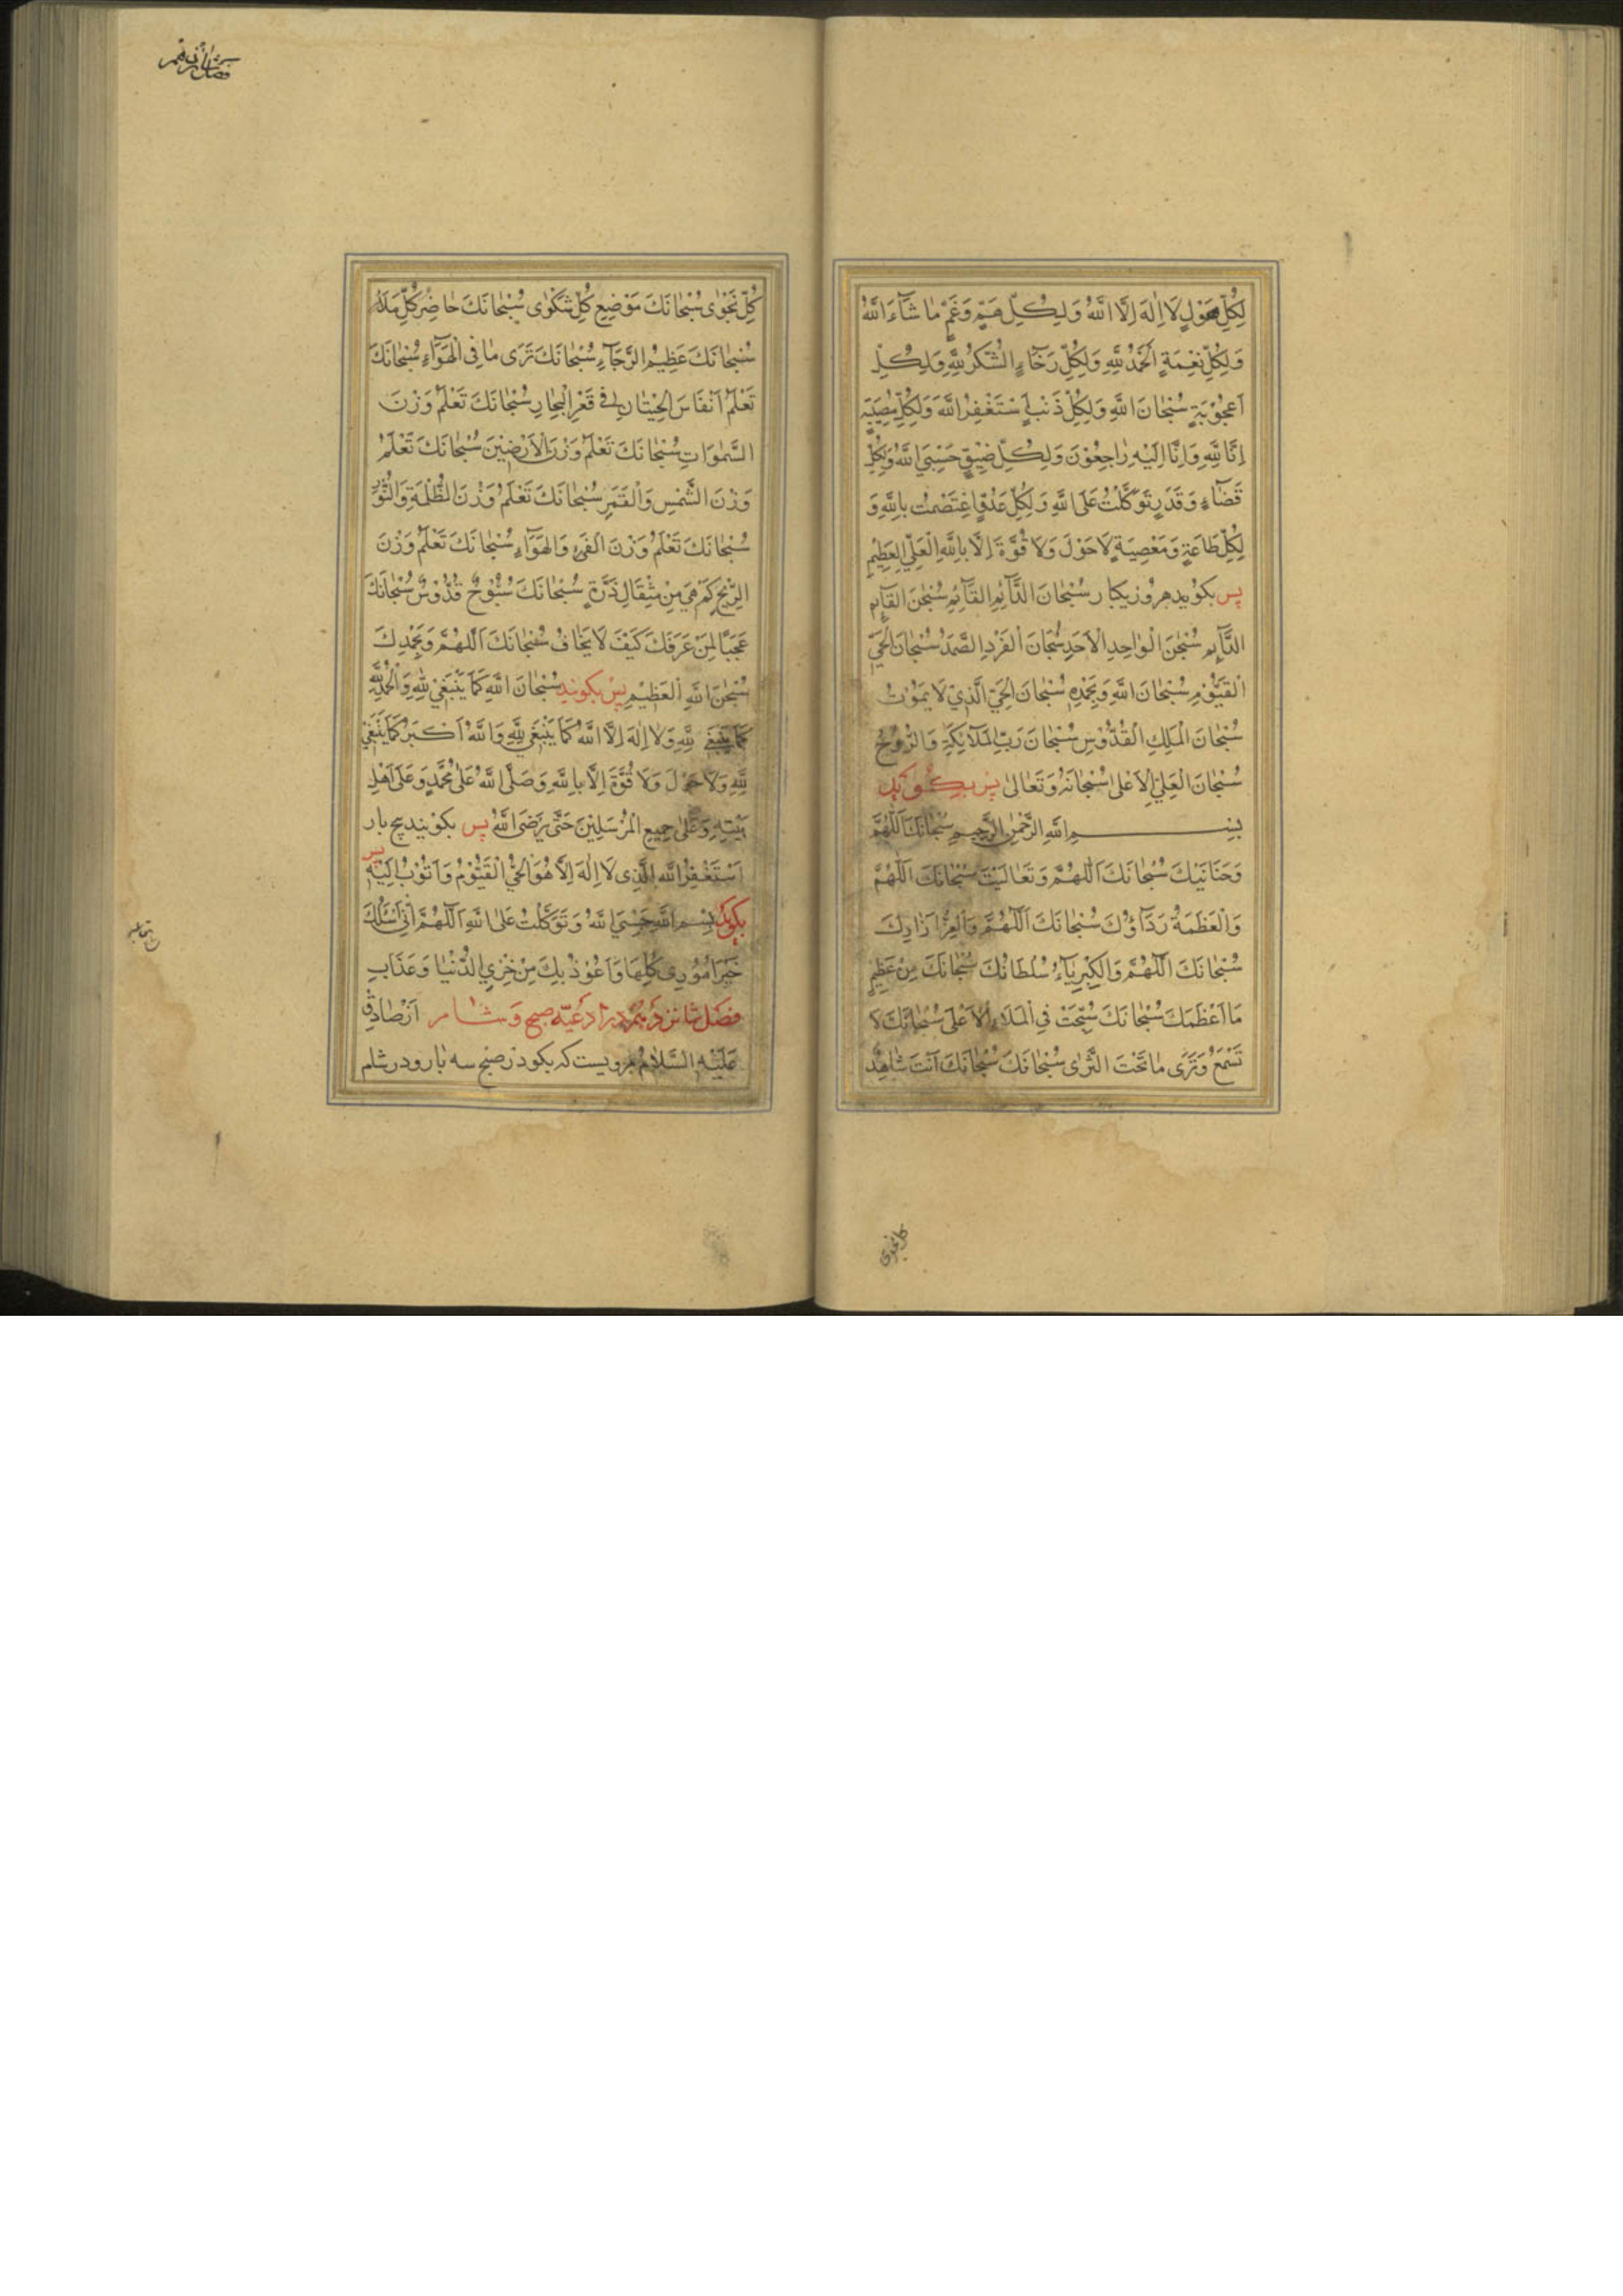 لِكُلِّ هَوْلٍ لَا اِلٰهَ اِلَّا اللّٰهُ وَ لِكُلِّ هَمٍّ وَ غَمٍّ مٰا شَآءَ اللّٰهُ
وَ لِكُلِّ نِعْمَةٍ اَلْحَمْدُ لِلّٰهِ وَ لِكُلِّ رَخَآءٍ الشُّكْرُ لِلّٰهِ وَ لِكُلِّ
اُعْجُوْبَةٍ سُبْحٰانَ اللّٰهِ وَ لِكُلِّ ذَنْبٍ اَسْتَغْفِرُ اللّٰهَ وَ لِكُلِّ مُصِيْبَةٍ
اِنَّا لِلّٰهِ وَ اِنَّا اِلَيْهِ رٰاجِعُوْنَ وَ لِكُلِّ ضِيْقٍ حَسْبِيَ اللّٰهُ وَ لِكُلِّ
قَضَآءٍ وَ قَدَرٍ تَوَكَّلْتُ عَلَى اللّٰهِ وَ لِكُلِّ عَدُوٍّ اِعْتَصَمْتُ بِاللّٰهِ وَ
لِكُلِّ طَاعَةٍ وَ مَعْصِيَةٍ لَا حَوْلَ وَ لَا قُوَّةَ اِلَّا بِاللّٰهِ الْعَلِيِّ الْعَظِيْمِ
پس بكويد هر روز يكبار سُبْحٰانَ الدَّآئِمِ الْقَآئِمِ سُبْحٰنَ الْقَآئِمِ
الدَّآئِمِ سُبْحٰنَ الْوٰاحِدِ الْاَحَدِ سُبْحٰانَ الْفَرْدِ الصَّمَدِ سُبْحٰانَ الْحَيِّ
الْقَيُّوْمِ سُبْحٰانَ اللّٰهِ وَ بِحَمْدِهِ سُبْحٰانَ الْحَيِّ الَّذِيْ لَا يَمُوْتُ
سُبْحٰانَ الْمَلِكِ الْقُدُّوْسِ سُبْحٰانَ رَبِّ الْمَلَآئِكَةِ وَ الرُّوْحِ
سُبْحٰانَ الْعَلِيِّ الْاَعْلىٰ سُبْحٰانَهُ وَ تَعٰالىٰ پس بكويد
بِسْمِ اللّٰهِ الرَّحْمٰنِ الرَّحِيمِ سُبْحٰانَكَ اَللّٰهُمَّ
وَ حَنَانَيْكَ سُبْحٰانَكَ اَللّٰهُمَّ وَ تَعٰالَيْتَ سُبْحٰانَكَ اَللّٰهُمَّ
وَ الْعَظَمَةُ رِدَآؤُكَ سُبْحٰانَكَ اَللّٰهُمَّ وَ الْعِزُّ اِزٰارُكَ
سُبْحٰانَكَ اَللّٰهُمَّ وَ الْكِبْرِيَآءُ سُلْطَانُكَ سُبْحٰانَكَ مِنْ عَظِيْمٍ
مَا اَعْظَمَكَ سُبْحٰانَكَ سُبِّحْتَ فِي الْمَلَاءِ الْاَعْلىٰ سُبْحٰانَكَ
تَسْمَعُ وَ تَرىٰ مٰا تَحْتَ الثَّرىٰ سُبْحٰانَكَ سُبْحٰانَكَ اَنْتَ شٰاهِدُ
كل نجوى
كُلِّ نَجْوٰى سُبْحٰانَكَ مَوْضِعُ كُلِّ شَكْوٰى سُبْحٰانَكَ حٰاضِرُ كُلِّ مَلَاءٍ
سُبْحٰانَكَ عَظِيْمُ الرَّجَآءِ سُبْحٰانَكَ تَرىٰ مٰا فِى الْهَوَآءِ سُبْحٰانَكَ
تَعْلَمُ اَنْفَاسَ الْحِيْتٰانِ فِى قَعْرِ الْبِحٰارِ سُبْحٰانَكَ تَعْلَمُ وَزْنَ
السَّمٰوٰاتِ سُبْحٰانَكَ تَعْلَمُ وَزْنَ الْاَرَضِيْنَ سُبْحٰانَكَ تَعْلَمُ
وَزْنَ الشَّمْسِ وَ الْقَمَرِ سُبْحٰانَكَ تَعْلَمُ وَزْنَ الظُّلْمَةِ وَ النُّوْرِ
سُبْحٰانَكَ تَعْلَمُ وَزْنَ الْفَيْءِ وَ الْهَوَآءِ سُبْحٰانَكَ تَعْلَمُ وَزْنَ
الرِّيْحِ كَمْ هِيَ مِنْ مِثْقَالِ ذَرَّةٍ سُبْحٰانَكَ سُبُّوْحٌ قُدُّوْسٌ سُبْحٰانَكَ
عَجَبًا لِمَنْ عَرَفَكَ كَيْفَ لَا يَخٰافُ سُبْحٰانَكَ اَللّٰهُمَّ وَ بِحَمْدِكَ
سُبْحٰنَ اللّٰهِ الْعَظِيْمِ پس بكويند سُبْحٰانَ اللّٰهِ كَمَا يَنْبَغِيْ لِلّٰهِ وَ الْحَمْدُ لِلّٰهِ
كَمَا يَنْبَغِي لِلّٰهِ وَ لَا اِلٰهَ اِلَّا اللّٰهُ كَمَا يَنْبَغِي لِلّٰهِ وَ اللّٰهُ اَكْبَرُ كَمَا يَنْبَغِيْ
لِلّٰهِ وَ لَا حَوْلَ وَ لَا قُوَّةَ اِلَّا بِاللّٰهِ وَ صَلَّى اللّٰهُ عَلىٰ مُحَمَّدٍ وَ عَلىٰ اَهْلِ
بَيْتِهِ وَ عَلىٰ جَمِيعِ الْمُرْسَلِيْنَ حَتّٰى يَرْضَى اللّٰهُ پس بكويند پنج بار
اَسْتَغْفِرُ اللّٰهَ الَّذِى لَا اِلٰهَ اِلَّا هُوَ الْحَيُّ الْقَيُّوْمُ وَ اَتُوْبُ اِلَيْهِ پس
بكويد بِسْمِ اللّٰهِ حَسْبِيَ اللّٰهُ وَ تَوَكَّلْتُ عَلَى اللّٰهِ اَللّٰهُمَّ اِنِّى اَسْئَلُكَ
خَيْرَ اُمُوْرِى كُلِّهَا وَ اَعُوْذُ بِكَ مِنْ خِزْيِ الدُّنْيٰا وَ عَذَابِ
فصل شانزدهم در ادعيه صبح و شام از صادق
عَلَيْهِ السَّلَامُ مرويست كه بكو در صبح سه بار و در شام